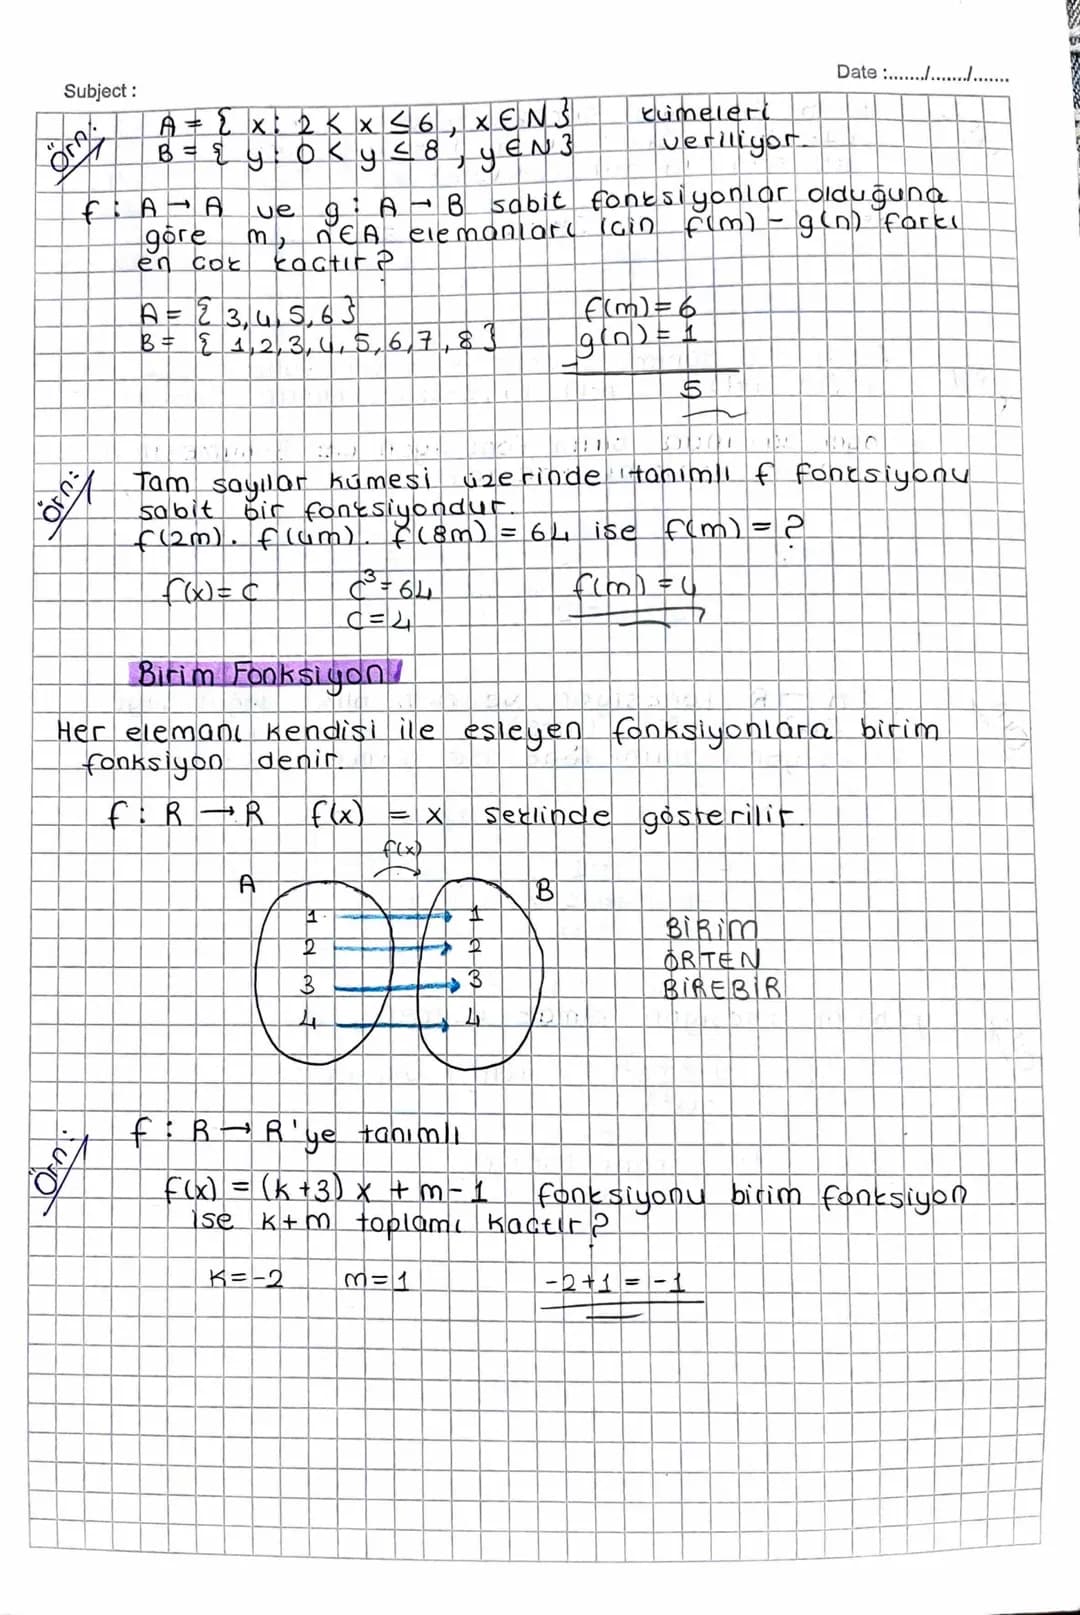 Date :......./......./.......
Subject :
Örn: A = { x: 2 < x ≤ 6, x ∈ N } kümeleri
B = { y: 0 < y ≤ 8, y ∈ N } veriliyor.
f : A → A ve g : A → B sabit fonksiyonlar olduğuna
göre m, n ∈ A elemanları için f(m) - g(n) farkı
en çok kaçtır?
A = { 3,4,5,6 } f(m) = 6
B = { 1,2,3,4,5,6,7,8 } g(n) = 1
5
Örn: Tam sayılar kümesi üzerinde tanımlı f fonksiyonu
sabit bir fonksiyondur.
f(2m). f(4m). f(8m) = 64 ise f(m) = ?
f(x) = c c³ = 64 f(m) = 4
c = 4
Birim Fonksiyon
Her elemanı kendisi ile eşleyen fonksiyonlara birim
fonksiyon denir.
f : R → R f(x) = x şeklinde gösterilir.
f(x)
A B
1 1 BİRİM
2 2 ÖRTEN
3 3 BİREBİR
4 4
Örn: f : R → R'ye tanımlı
f(x) = (k+3) x + m-1 fonksiyonu birim fonksiyon
ise k+m toplamı kaçtır?
k=-2 m=1 -2+1 = -1